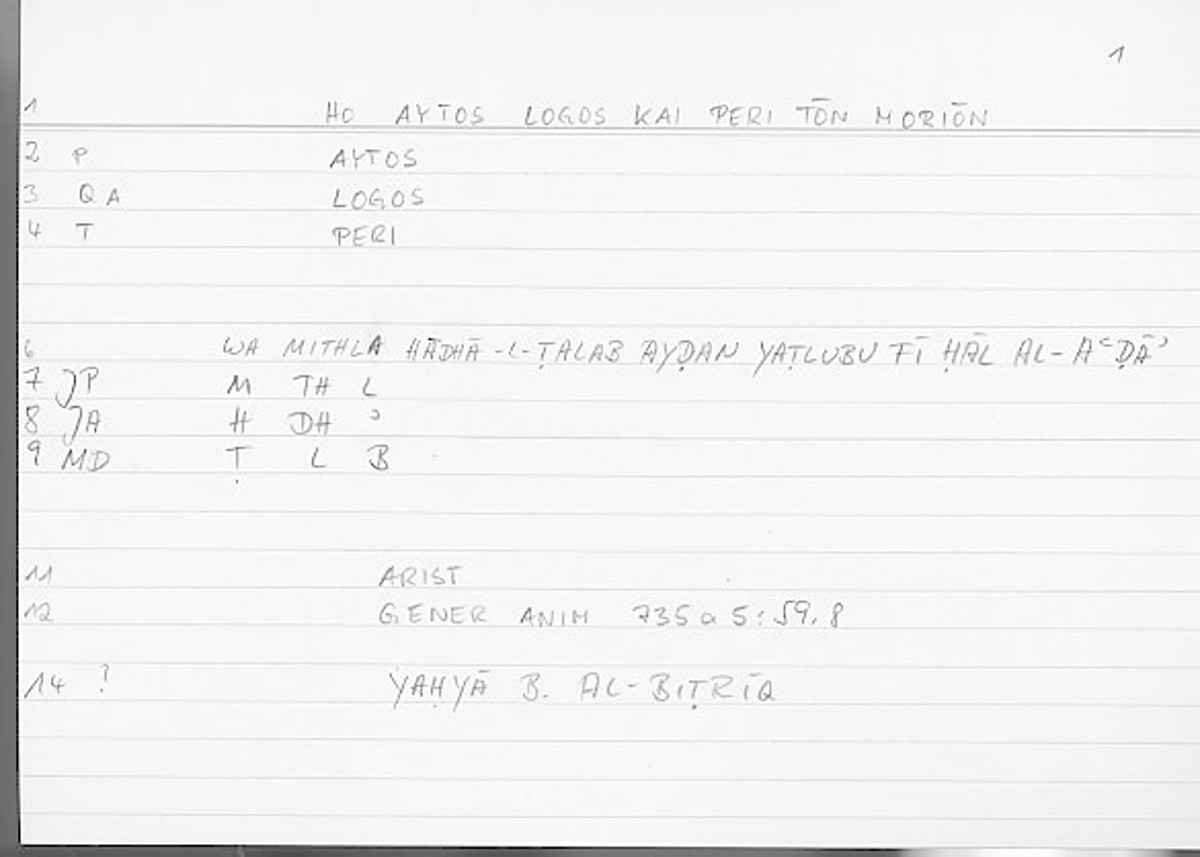 1
1 HO AYTOS LOGOS KAI PERI TŌN MORIŌN
2 P AYTOS
3 Q A LOGOS
4 T PERI
6 WA MITHLA HĀDHĀ -L-ṬALAB AYḌAN YAṬLUBU FĪ ḤĀL AL-AʿḌĀʾ
7 JP M TH L
8 JA H DH ʾ
9 MD Ṭ L B
11 ARIST
12 GENER ANIM 735 a 5 : 59, 8
14 ? YAḤYĀ B. AL-BIṬRĪQ